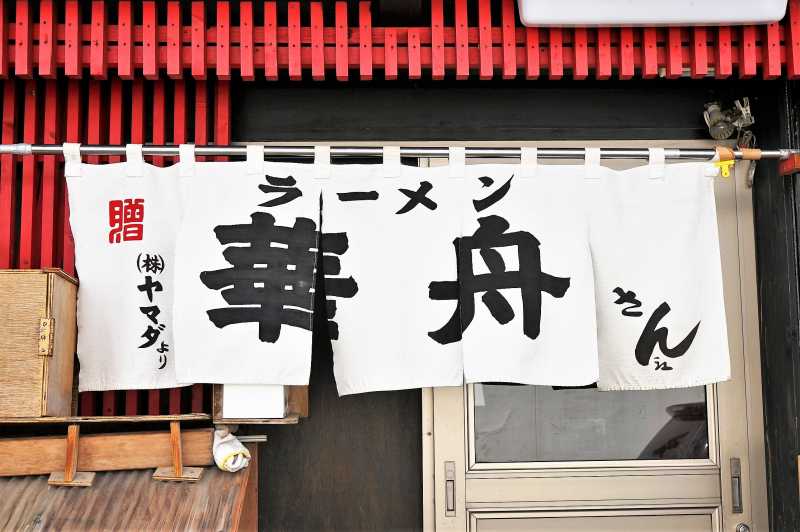 贈
(株)ヤマダより
ラーメン
華舟
さん江